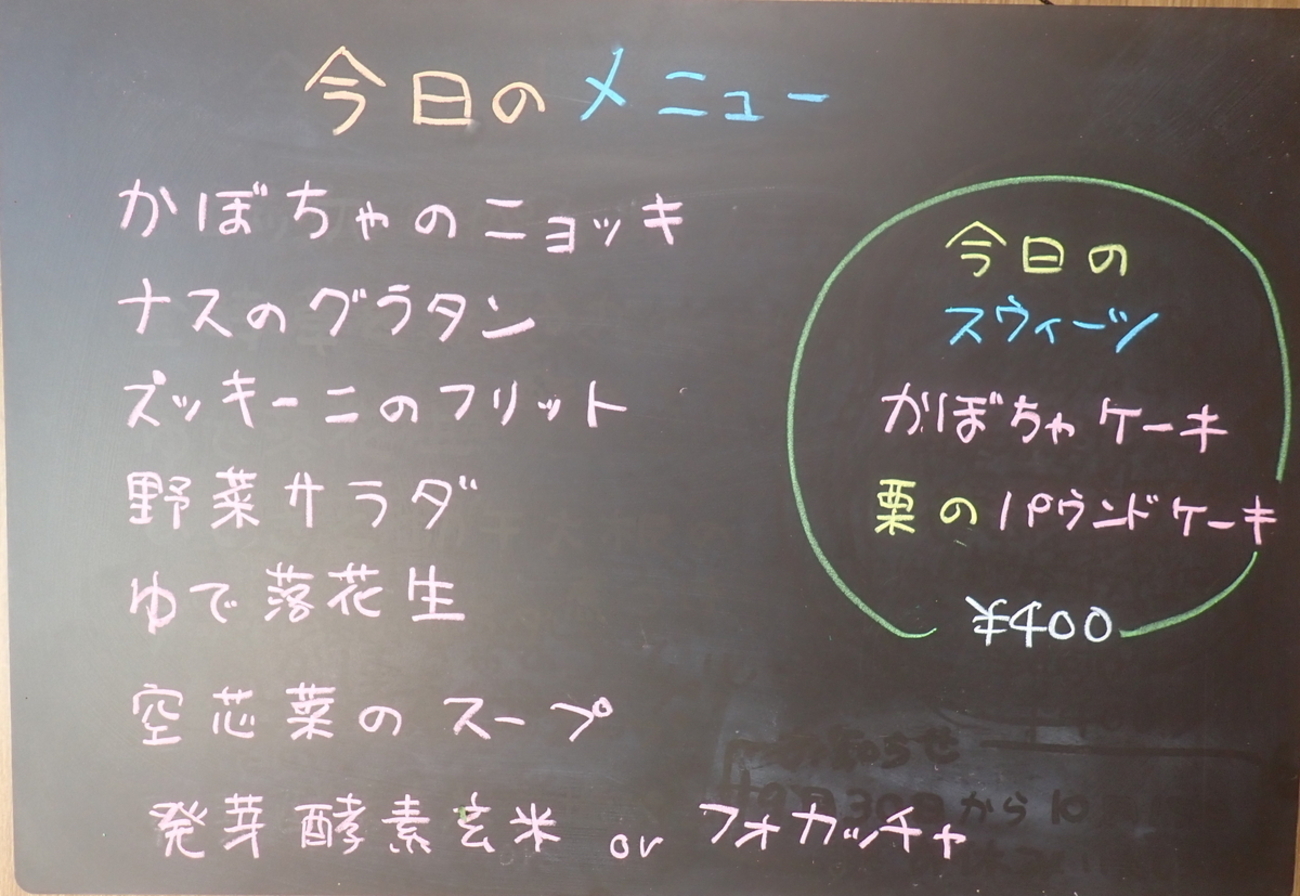 今日のメニュー
かぼちゃのニョッキ
ナスのグラタン
ズッキーニのフリット
野菜サラダ
ゆで落花生
空芯菜のスープ
発芽酵素玄米 or フォカッチャ
今日の
スウィーツ
かぼちゃケーキ
栗のパウンドケーキ
¥400
お知らせ
9月30日から10